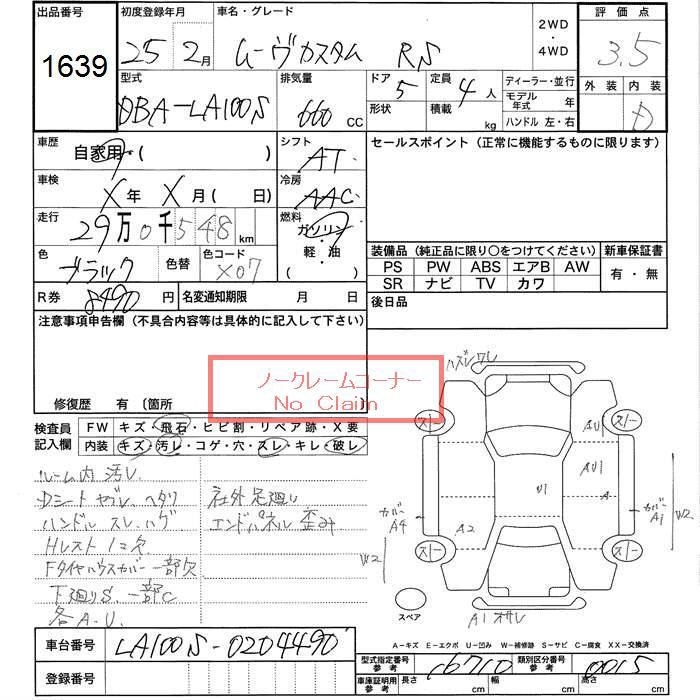 出品番号 初度登録年月 車名・グレード 2WD・4WD 評価点
1639 25年 2月 ムーヴカスタム RS 3.5
型式 排気量 ドア 5 定員 4人 ディーラー・並行 外装 内装
DBA-LA100S 660cc 形状 積載 kg モデル年式 年 ハンドル 左・右 D
車歴 自家用・( ) シフト AT セールスポイント (正常に機能するものに限ります)
車検 X年 X月( 日) 冷房 AAC
走行 29万0千548km 燃料 ガソリン・軽・油 ( )
色 ブラック 色替 色コード X07 装備品 (純正品に限り○をつけてください) 新車保証書
PS PW ABS エアB AW 有・無
SR ナビ TV カワ
R券 8490円 名変通知期限 月 日 後日品
注意事項申告欄 (不具合内容等は具体的に記入して下さい)
ノークレームコーナー
No Claim
修復歴 有 〔箇所 〕
検査員記入欄 FW キズ・飛石・ヒビ割・リペア跡・X要
内装 キズ・汚レ・コゲ・穴・スレ・キレ・破レ
ルーム内 汚レ
Dシート ヤブレ、ヘタリ 社外足廻り
ハンドル スレ、ハゲ エンドパネル 歪み
Hレスト 1コ欠
Fタイヤハウスカバー 一部欠
下廻りS、一部C
各A.U.
ハズレ ワレ
スノー スノー
AU1
AU1
A
U1
カバー A4
カバー A1
W2
A2
W2
スノー スノー
スペア
A1 オサレ
A-キズ E-エクボ U-凹み W-補修跡 S-サビ C-腐食 XX-交換済
車台番号 LA100S-0204490
登録番号
型式指定番号 参考 16710 類別区分番号 参考 0015
車庫証明用 参考 長さ cm 幅 cm 高さ cm